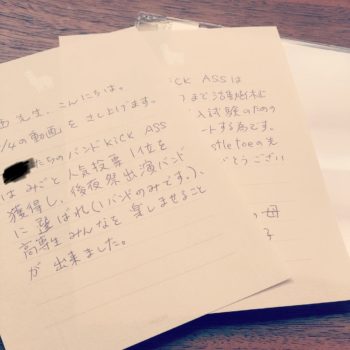 先生、こんにちは。
/4の動画をさし上げます。
たちのバンドKICK ASS
はみごと人気投票1位を
獲得し、後夜祭出演バンド
に選ばれ(1バンドのみです。)、
高専生みんなを楽しませること
が出来ました。
ICK ASSは
まで活動休止
入試験のための
ートする為です。
stle toeの先
がとうござい
の母
子